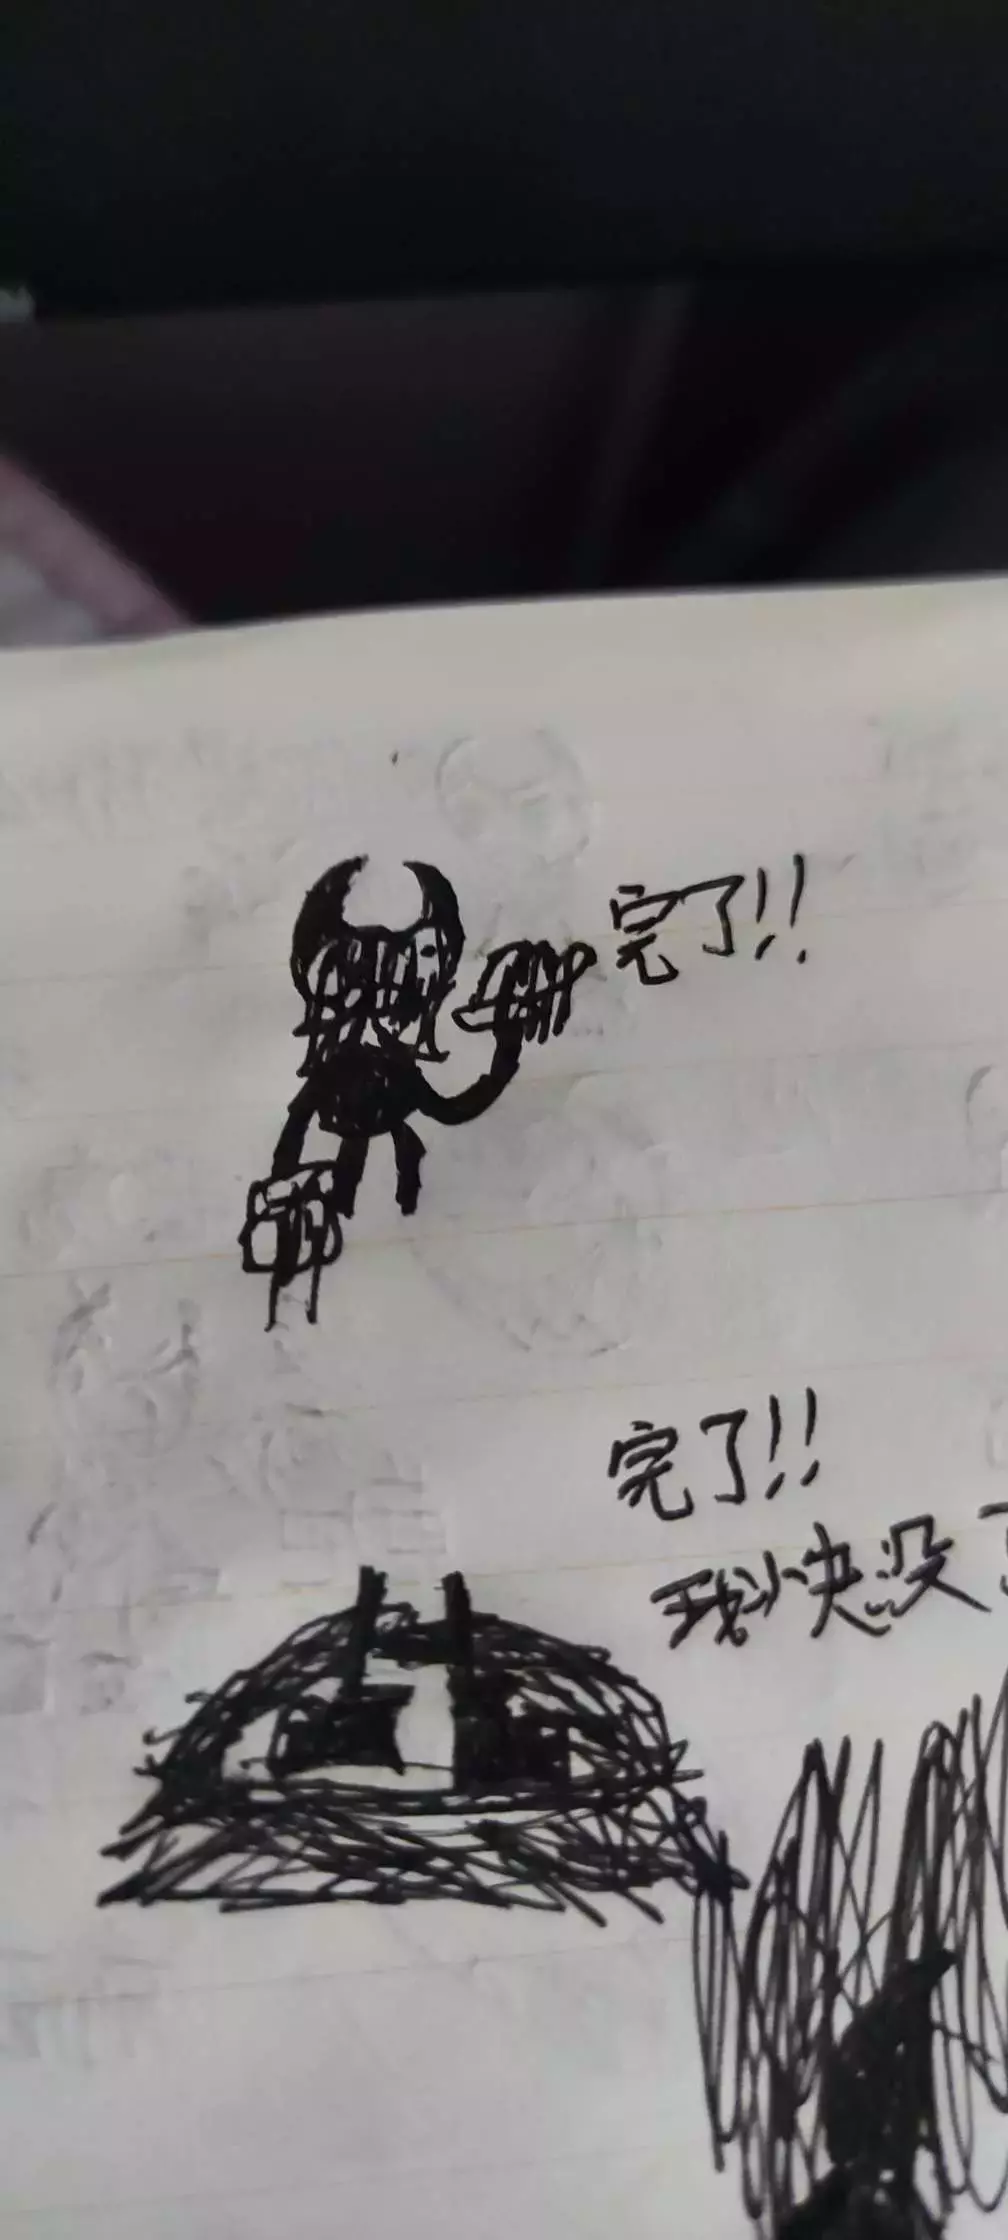 完了!!
完了!!
我快没了